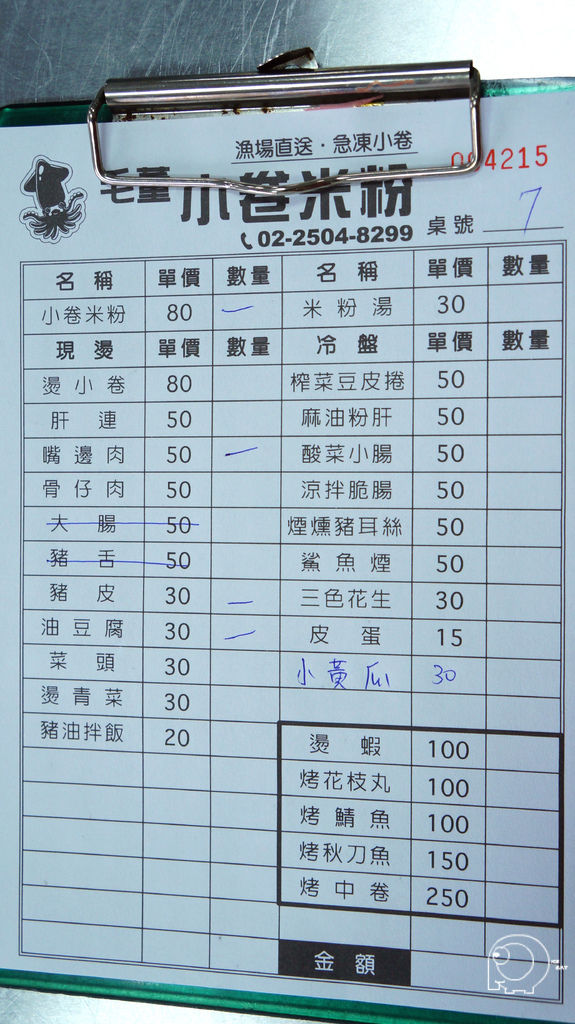 漁場直送·急凍小卷
毛董 小卷米粉
4215
02-2504-8299
桌號 7
名稱 單價 數量 名稱 單價 數量
小卷米粉 80 一 米粉湯 30
現燙 單價 數量 冷盤 單價 數量
燙小卷 80 榨菜豆皮捲 50
肝連 50 麻油粉肝 50
嘴邊肉 50 一 酸菜小腸 50
骨仔肉 50 涼拌脆腸 50
大腸 50 煙燻豬耳絲 50
豬舌 50 鯊魚煙 50
豬皮 30 一 三色花生 30
油豆腐 30 一 皮蛋 15
菜頭 30 小黃瓜 30
燙青菜 30
豬油拌飯 20 燙蝦 100
烤花枝丸 100
烤鯖魚 100
烤秋刀魚 150
烤中卷 250
金額